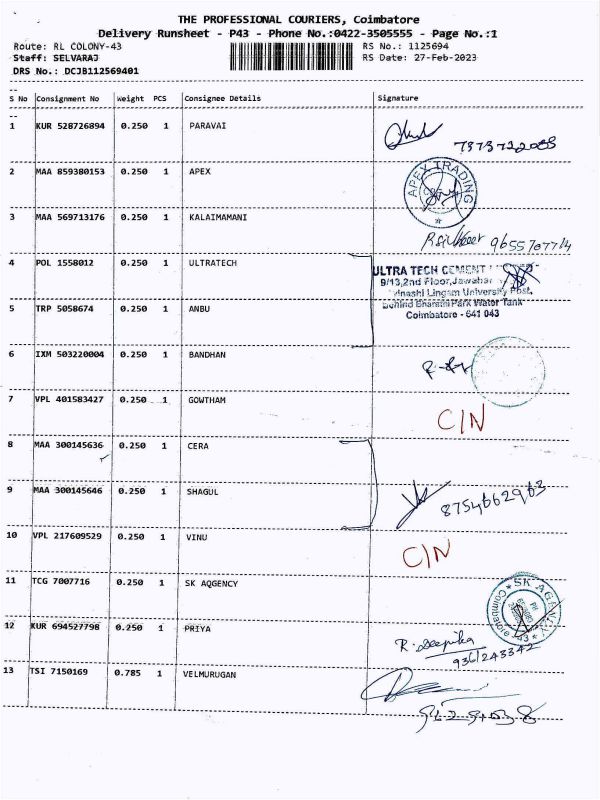 THE PROFESSIONAL COURIERS, Coimbatore
Delivery Runsheet - P43 - Phone No.:0422-3505555 - Page No.:1
Route: RL COLONY-43 RS No.: 1125694
Staff: SELVARAJ RS Date: 27-Feb-2023
DRS No.: DCJB112569401
S No Consignment No Weight PCS Consignee Details Signature
1 KUR 528726894 0.250 1 PARAVAI
7373722088
2 MAA 859380153 0.250 1 APEX
APEX TRADING
3 MAA 569713176 0.250 1 KALAIMAMANI
9655707714
4 POL 1558012 0.250 1 ULTRATECH
ULTRA TECH CEMENT
9/13,2nd Floor,Jawahar
Lingam University Post,
Behind Bharathi Park Water Tank
Coimbatore - 641 043
5 TRP 5058674 0.250 1 ANBU
6 IXM 503220004 0.250 1 BANDHAN
7 VPL 401583427 0.250 1 GOWTHAM
C/N
8 MAA 300145636 0.250 1 CERA
9 MAA 300145646 0.250 1 SHAGUL
8754662963
10 VPL 217609529 0.250 1 VINU
C/N
11 TCG 7007716 0.250 1 SK AQGENCY
SK
Coimbatore - 43
12 KUR 694527798 0.250 1 PRIYA
R. Deepika
9361243342
13 TSI 7150169 0.785 1 VELMURUGAN